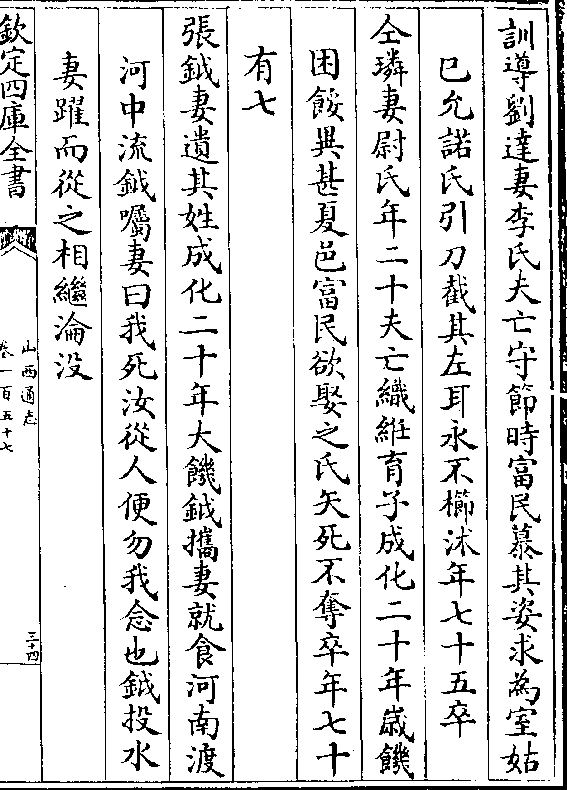 訓導劉達妻李氏夫亡守節時富民慕其姿求為室姑
已允諾氏引刀截其左耳永不櫛沐年七十五卒
仝璘妻尉氏年二十夫亡織絍育子成化二十年嵗饑
困餒異甚夏邑富民欲娶之氏矢死不奪卒年七十
有七
張鉞妻遺其姓成化二十年大饑鉞攜妻就食河南渡
河中流鉞囑妻曰我死汝從人便勿我念也鉞投水
妻躍而從之相繼淪没
欽定四庫全書
山西通志
卷一百五十七
三十四